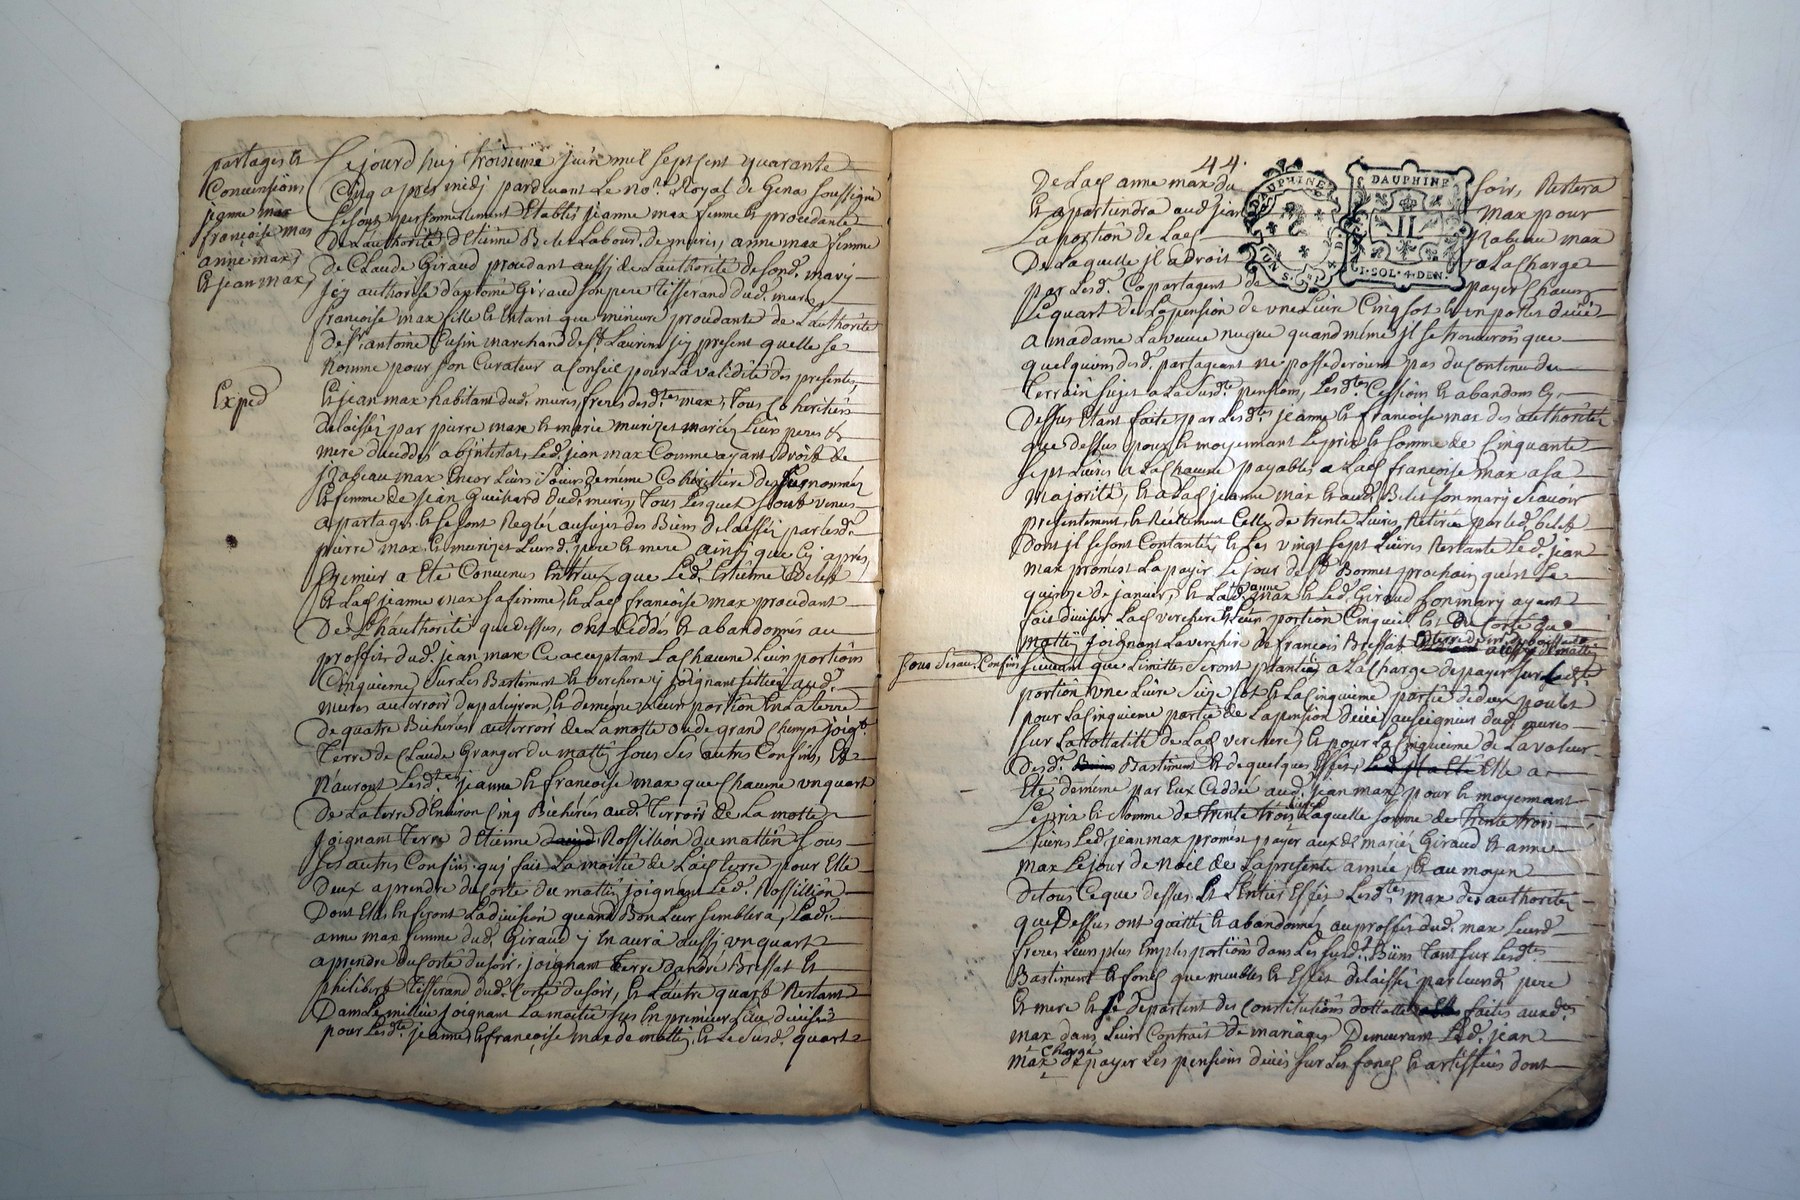 partages et
Conventions
jeanne max
françoise max
anne max,
et jean max
Exped
Cejourd'huy troisieme juin mil sept cent quarante
Cinq apres midy pardevant Le nore Royal de Genas soussigné
se sont personnellement Etablis jeanne max femme et procedante
De L'authorité d'Etienne Belet Labour. de mures, anne max femme
de Claude Giraud procedant aussi de L'authorité de sond. mary
jcy authorisé d'antoine Giraud son pere Tisserand dud. mures
françoise max fille et Entant que mineure procedante de L'authorité
de sr. antoine Cusin marchand de st. Laurins jcy present quelle se
Nomme pour son Curateur a Conseil pour La validité des presentes,
Et jean max habitant dud. mures, freres desdtes max, Tous Coheritiers
delaissés par pierre max et marie murizet mariés Leurs peres et
mere decedés abintestat, Led. jean max Comme ayant droit de
jzabeau max Encor Leurs soeurs de même Coheritiere des susnommés
Et femme de jean Guichard dud. mures, Tous Lesquels sont venus
a partages et se sont Reglés au sujet des Biens delaissés par Lesd.
pierre max et murizet Leursd. pere et mere ainsi que Cy apres,
premier a Eté Convenus Entreux que Led. Estienne Belet
Et Lad. jeanne max sa femme, et Lad. françoise max procedant
De L'hauthorité que dessus, ont Ceddés et abandonnés au
proffit dud. jean max Ce acceptant La Chacune Leurs portions
Cinquieme sur Les Bastiment et verchere y joignant scittués aud.
mures au terroir du paleyron, et de meme Leur portion En La terre
de quatre Bicherées au terroir de La motte ou de grand Champs joigt.
Terre de Claude Granger du mattin sous ses autres Confins, Et
N'auront Lesdtes jeanne et françoise max que Chacune un quart
De La terre d'Environ Cinq Bicherées aud. Terroir de La motte
joignant Terre d'Etienne Rossillion du mattin sous
ses autres Confins qui fait La moitié de Lad. terre pour Elle
Deux a prendre du Coste du mattin joignant Led. Rossillion
Dont Elles En feront La division quand Bon Leur semblera, Lad.
anne max femme dud. Giraud y En aura aussi un quart
a prendre du Coste du soir, joignant Terre d'andré Bressat et
philibert Tisserand dud. Coste du soir, et L'autre quart Restant
Dans Le millieu joignant La moitié sus En premier Lieu divisée
pour Lesdtes jeanne et françoise max de mattin, et Le susd. quart
44.
DAUPHINE
UN S.
DAUPHINE
II
1·SOL·4·DEN.
De Lad. anne max du soir, Restera
Et apartiendra aud. jean max pour
La portion de Lad. jzabeau max
De Laquelle jl a droit a La Charge
par Lesd. Copartagent de payer Chacun
Le quart de La pension de une Livre Cinq sol et un poulet deüe
a madame La veuve nugue quand même jl se trouveroit que
quelqu'un desd. partageant ne possederoient pas du Contenu du
Terrain sujet a La susdte pension, Lesdtes Cessions et abandons Cy
Dessus Etant faites par Lesdtes jeanne et françoise max des authorités
que dessus pour et moyennant Le prix et somme de Cinquante
sept Livres a La Chacune payables a Lad. françoise max a sa
majorité, et a Lad. jeanne max et aud. Belet son mary sçavoir
presentement et Réellement Celle de trente Livres, Retirée par Led. belet
Dont jl se sont Contantés, et Les vingt sept Livres Restante Led. jean
max promest La payer Le jour de st. Bonnet prochain qu'est Le
quinze de janvier, Et Lad. anne max et Led. Giraud son mary ayant
fait diviser Lad. verchere et Leur portion Cinquieme Est du Coste du
mattin joignant La verchere de françois Bressat
sous ses aut. Confins suivant que Limittes seront plantées a La Charge de payer sur Ladte
portion une Livre seize sol et La Cinquieme partie de deux poulet
pour La Cinquieme partie de La pension deüe au seigneur dud. mures
sur La tottalité de Lad. verchere, et pour La Cinquieme de La valeur
Desd. Bastiment et de quelques Effets Elle a
Eté de même par Eux Ceddée aud. jean max pour et moyennant
Le prix et somme de trente trois Livres Laquelle somme de trente trois
Livres Led. jean max promest payer aux d. mariés Giraud et anne
max Le jour de Noel de La presente année, Et au moyen
De tous Ce que dessus et L'Entier Effet Lesdtes max des authorités
que Dessus ont quitté et abandonnés au proffit dud. max Leurd.
freres Leur plus amples portions dans Les susd. Biens Tant sur Lesdtes
Bastiment et fonds que meubles et Effets delaissés par Leursd. pere
et mere et se departent des Constitutions dottalles faites auxdtes
max dans Leurs Contrait de mariages Demeurant Led. jean
max Chargé de payer Les pensions deües sur Les fonds et artifices dont